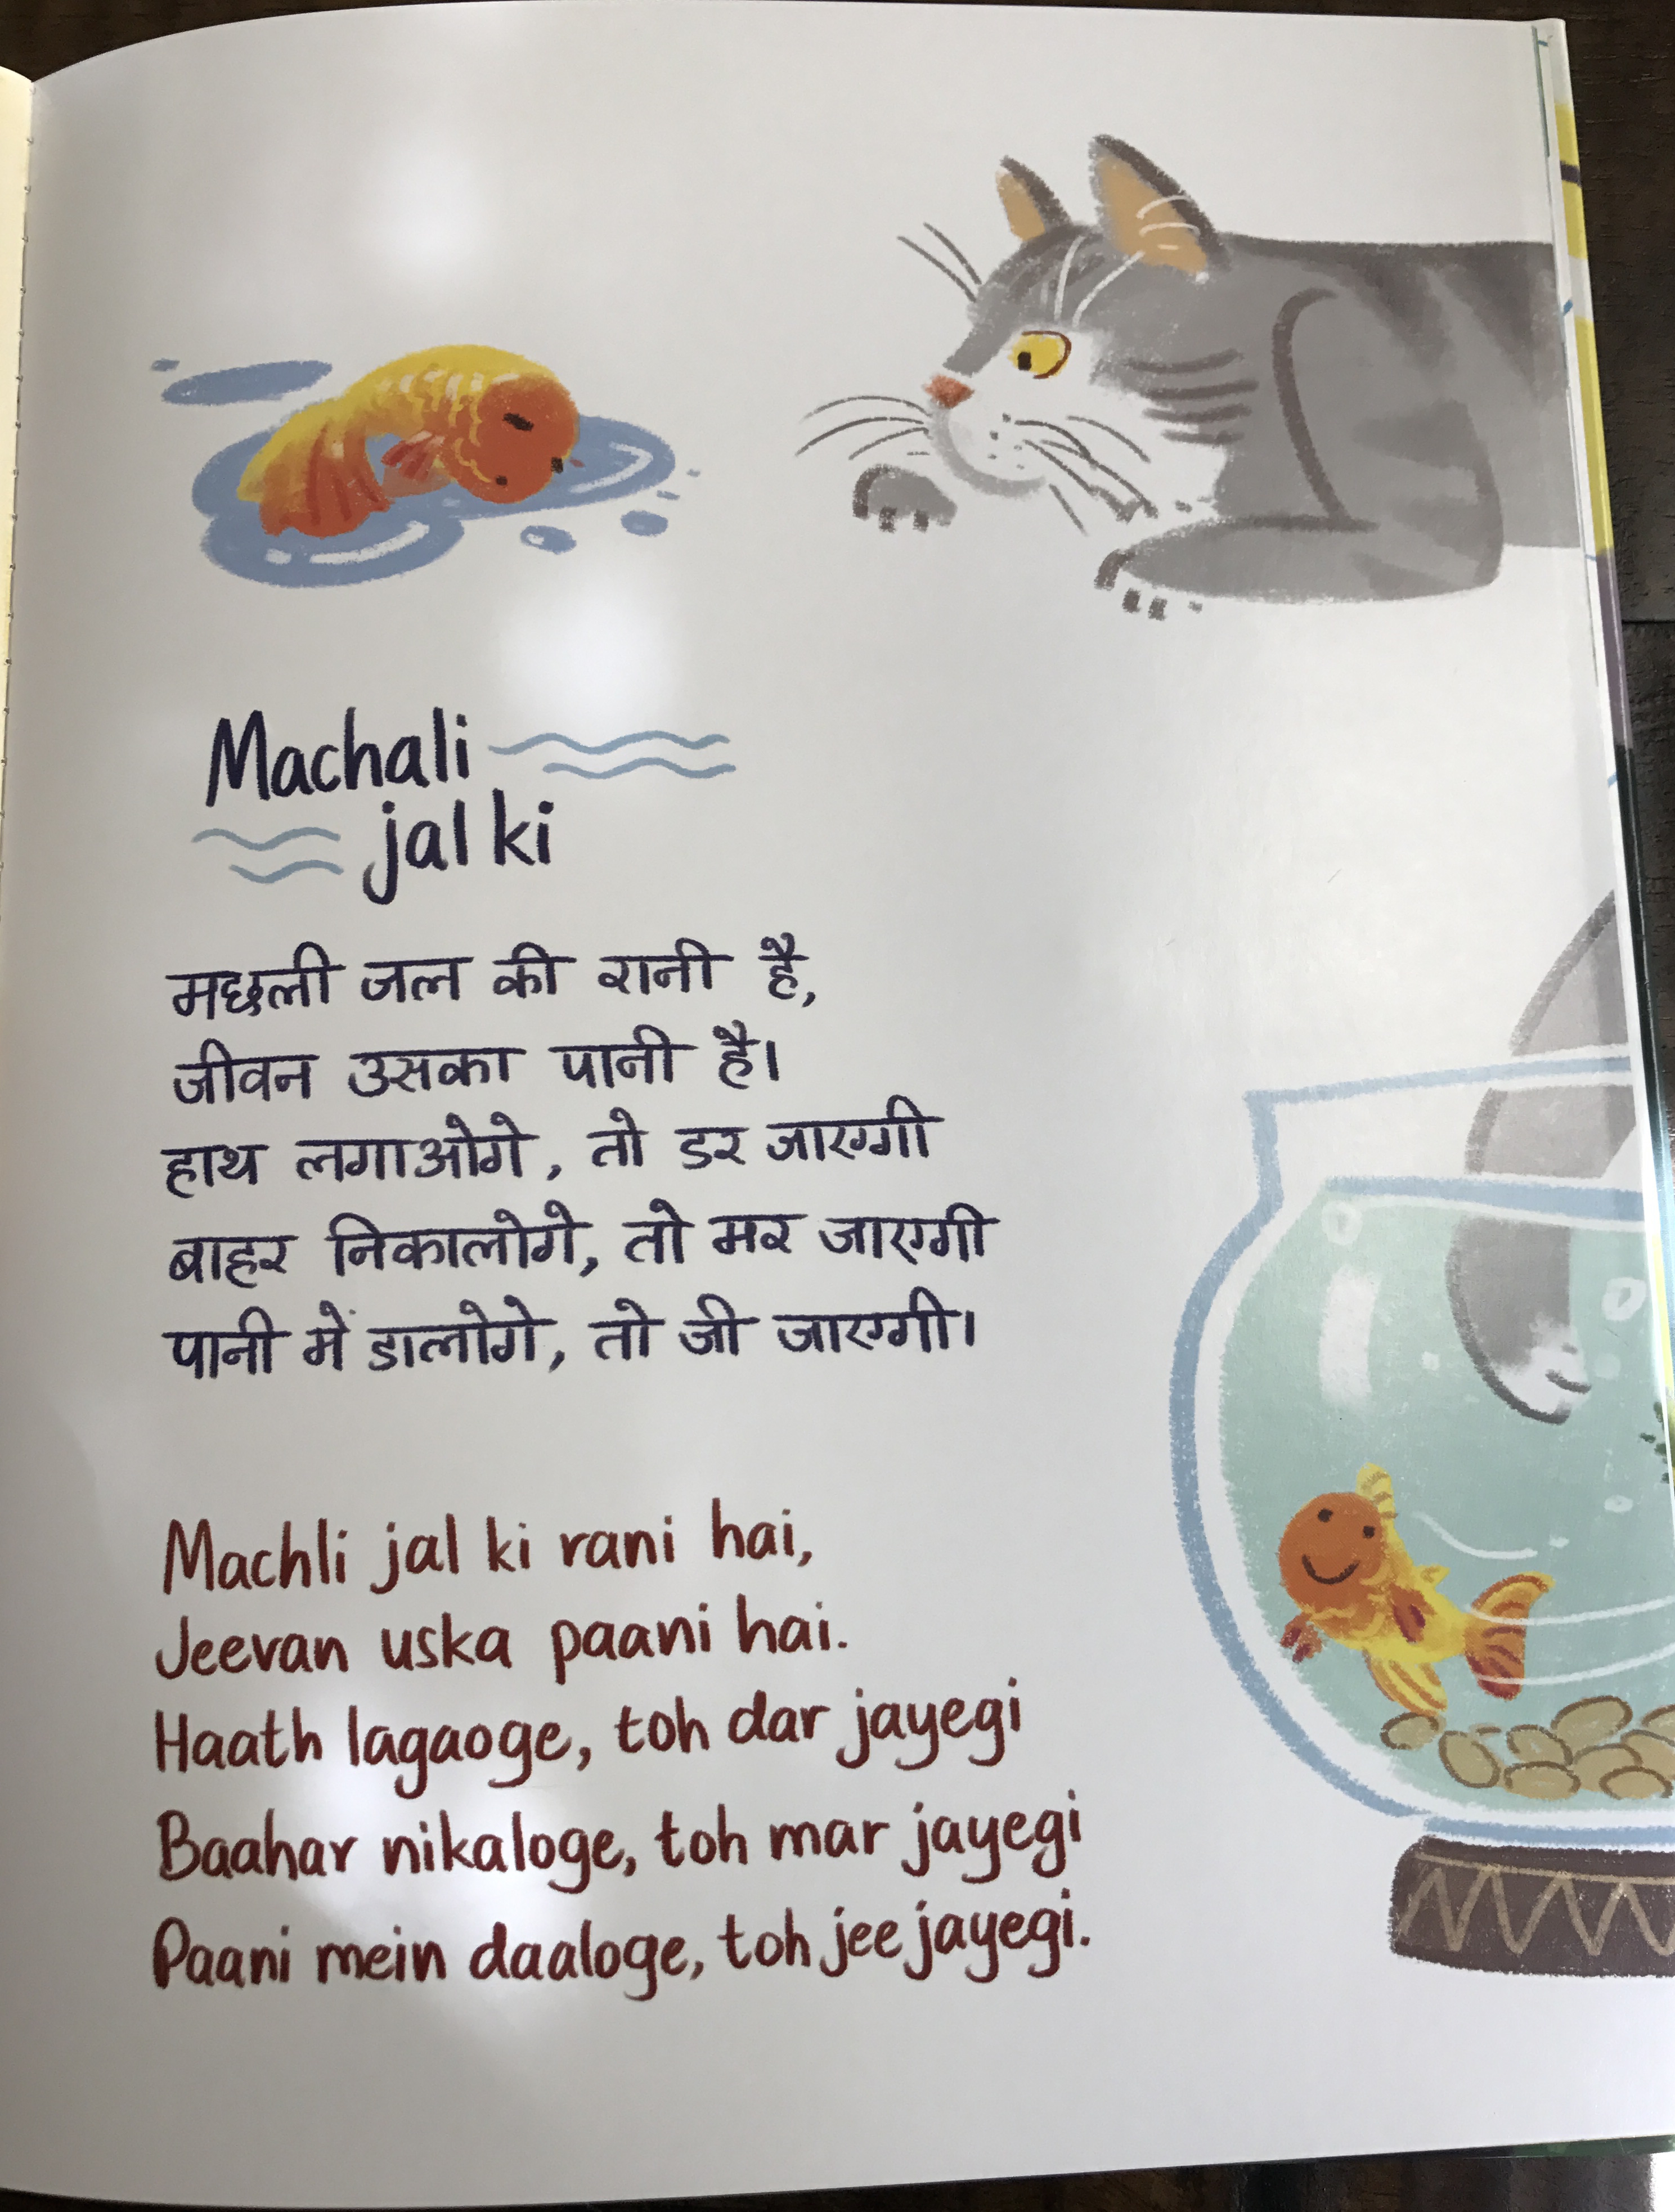 Machali
jal ki
मछली जल की रानी है,
जीवन उसका पानी है।
हाथ लगाओगे, तो डर जाएगी
बाहर निकालोगे, तो मर जाएगी
पानी में डालोगे, तो जी जाएगी।
Machli jal ki rani hai,
Jeevan uska paani hai.
Haath lagaoge, toh dar jayegi
Baahar nikaloge, toh mar jayegi
Paani mein daaloge, toh jee jayegi.